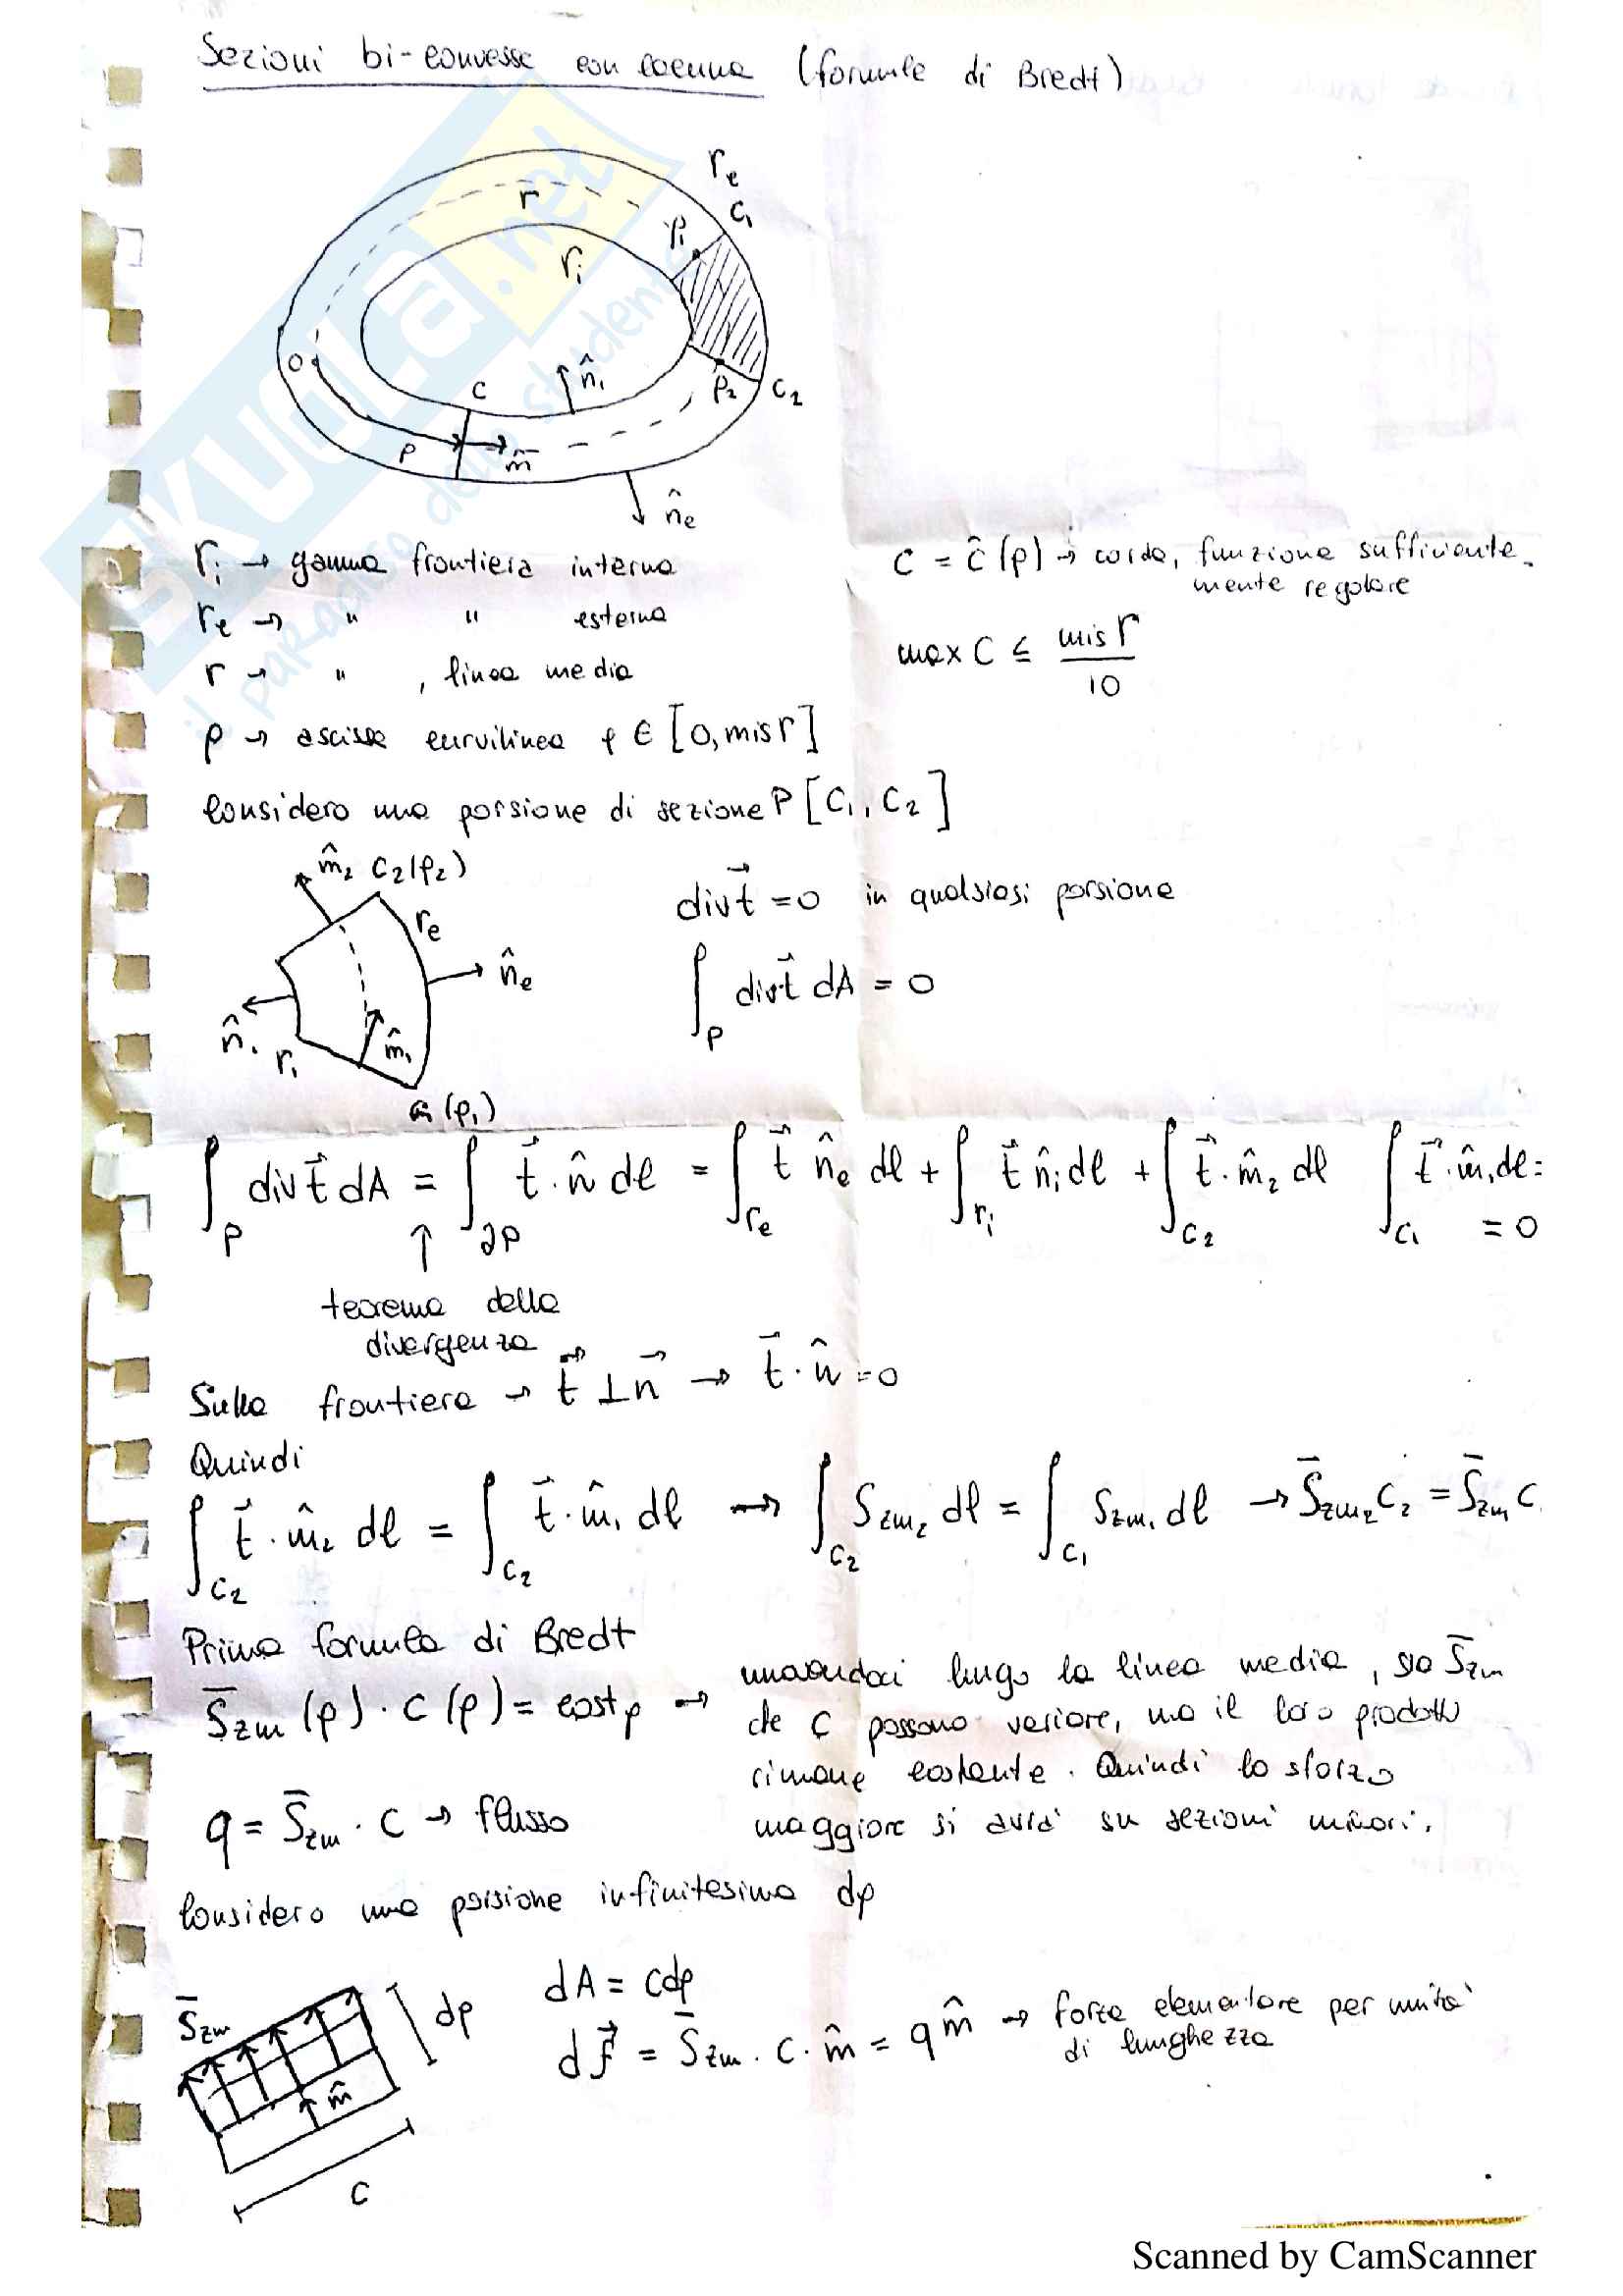 Sezioni bi-connesse con corda (formule di Bredt)
Γe
Γ
C1
ρ1
Γi
O
C
n̂i
ρ2
C2
ρ
m̂
n̂e
Γi → gamma frontiera interna
Γe → " " esterna
Γ → " , linea media
ρ → ascissa curvilinea ρ ∈ [0, mis Γ]
C = ĉ(ρ) → corda, funzione sufficiente-
mente regolare
max C ≤ mis Γ / 10
Considero una porzione di sezione P[C1, C2]
m̂2 C2(ρ2)
Γe
n̂e
n̂i
Γi
m̂1
C1(ρ1)
div t⃗ = 0 in qualsiasi porzione
∫P div t⃗ dA = 0
∫P div t⃗ dA = ∫∂P t⃗ · n̂ dl = ∫Γe t⃗ n̂e dl + ∫Γi t⃗ n̂i dl + ∫C2 t⃗ · m̂2 dl ∫C1 t⃗ · m̂1 dl =
= 0
↑
teorema della
divergenza
Sulla frontiera → t⃗ ⊥ n⃗ → t⃗ · n̂ = 0
Quindi
∫C2 t⃗ · m̂2 dl = ∫C2 t⃗ · m̂1 dl → ∫C2 Szm2 dl = ∫C1 Szm1 dl → S̄zm2 C2 = S̄zm1 C
Prima formula di Bredt
S̄zm (ρ) · C (ρ) = costρ →
muovendoci lungo la linea media, sia S̄zm
che C possono variare, ma il loro prodotto
rimane costante. Quindi lo sforzo
maggiore si avrà su sezioni minori.
q = S̄zm · C → flusso
Considero una porzione infinitesima dρ
S̄zm
dρ
m̂
C
dA = Cdρ
df⃗ = S̄zm · C · m̂ = q m̂ → forza elementare per unità
di lunghezza
SKUOLA.net
il paradiso dello studente
Scanned by CamScanner